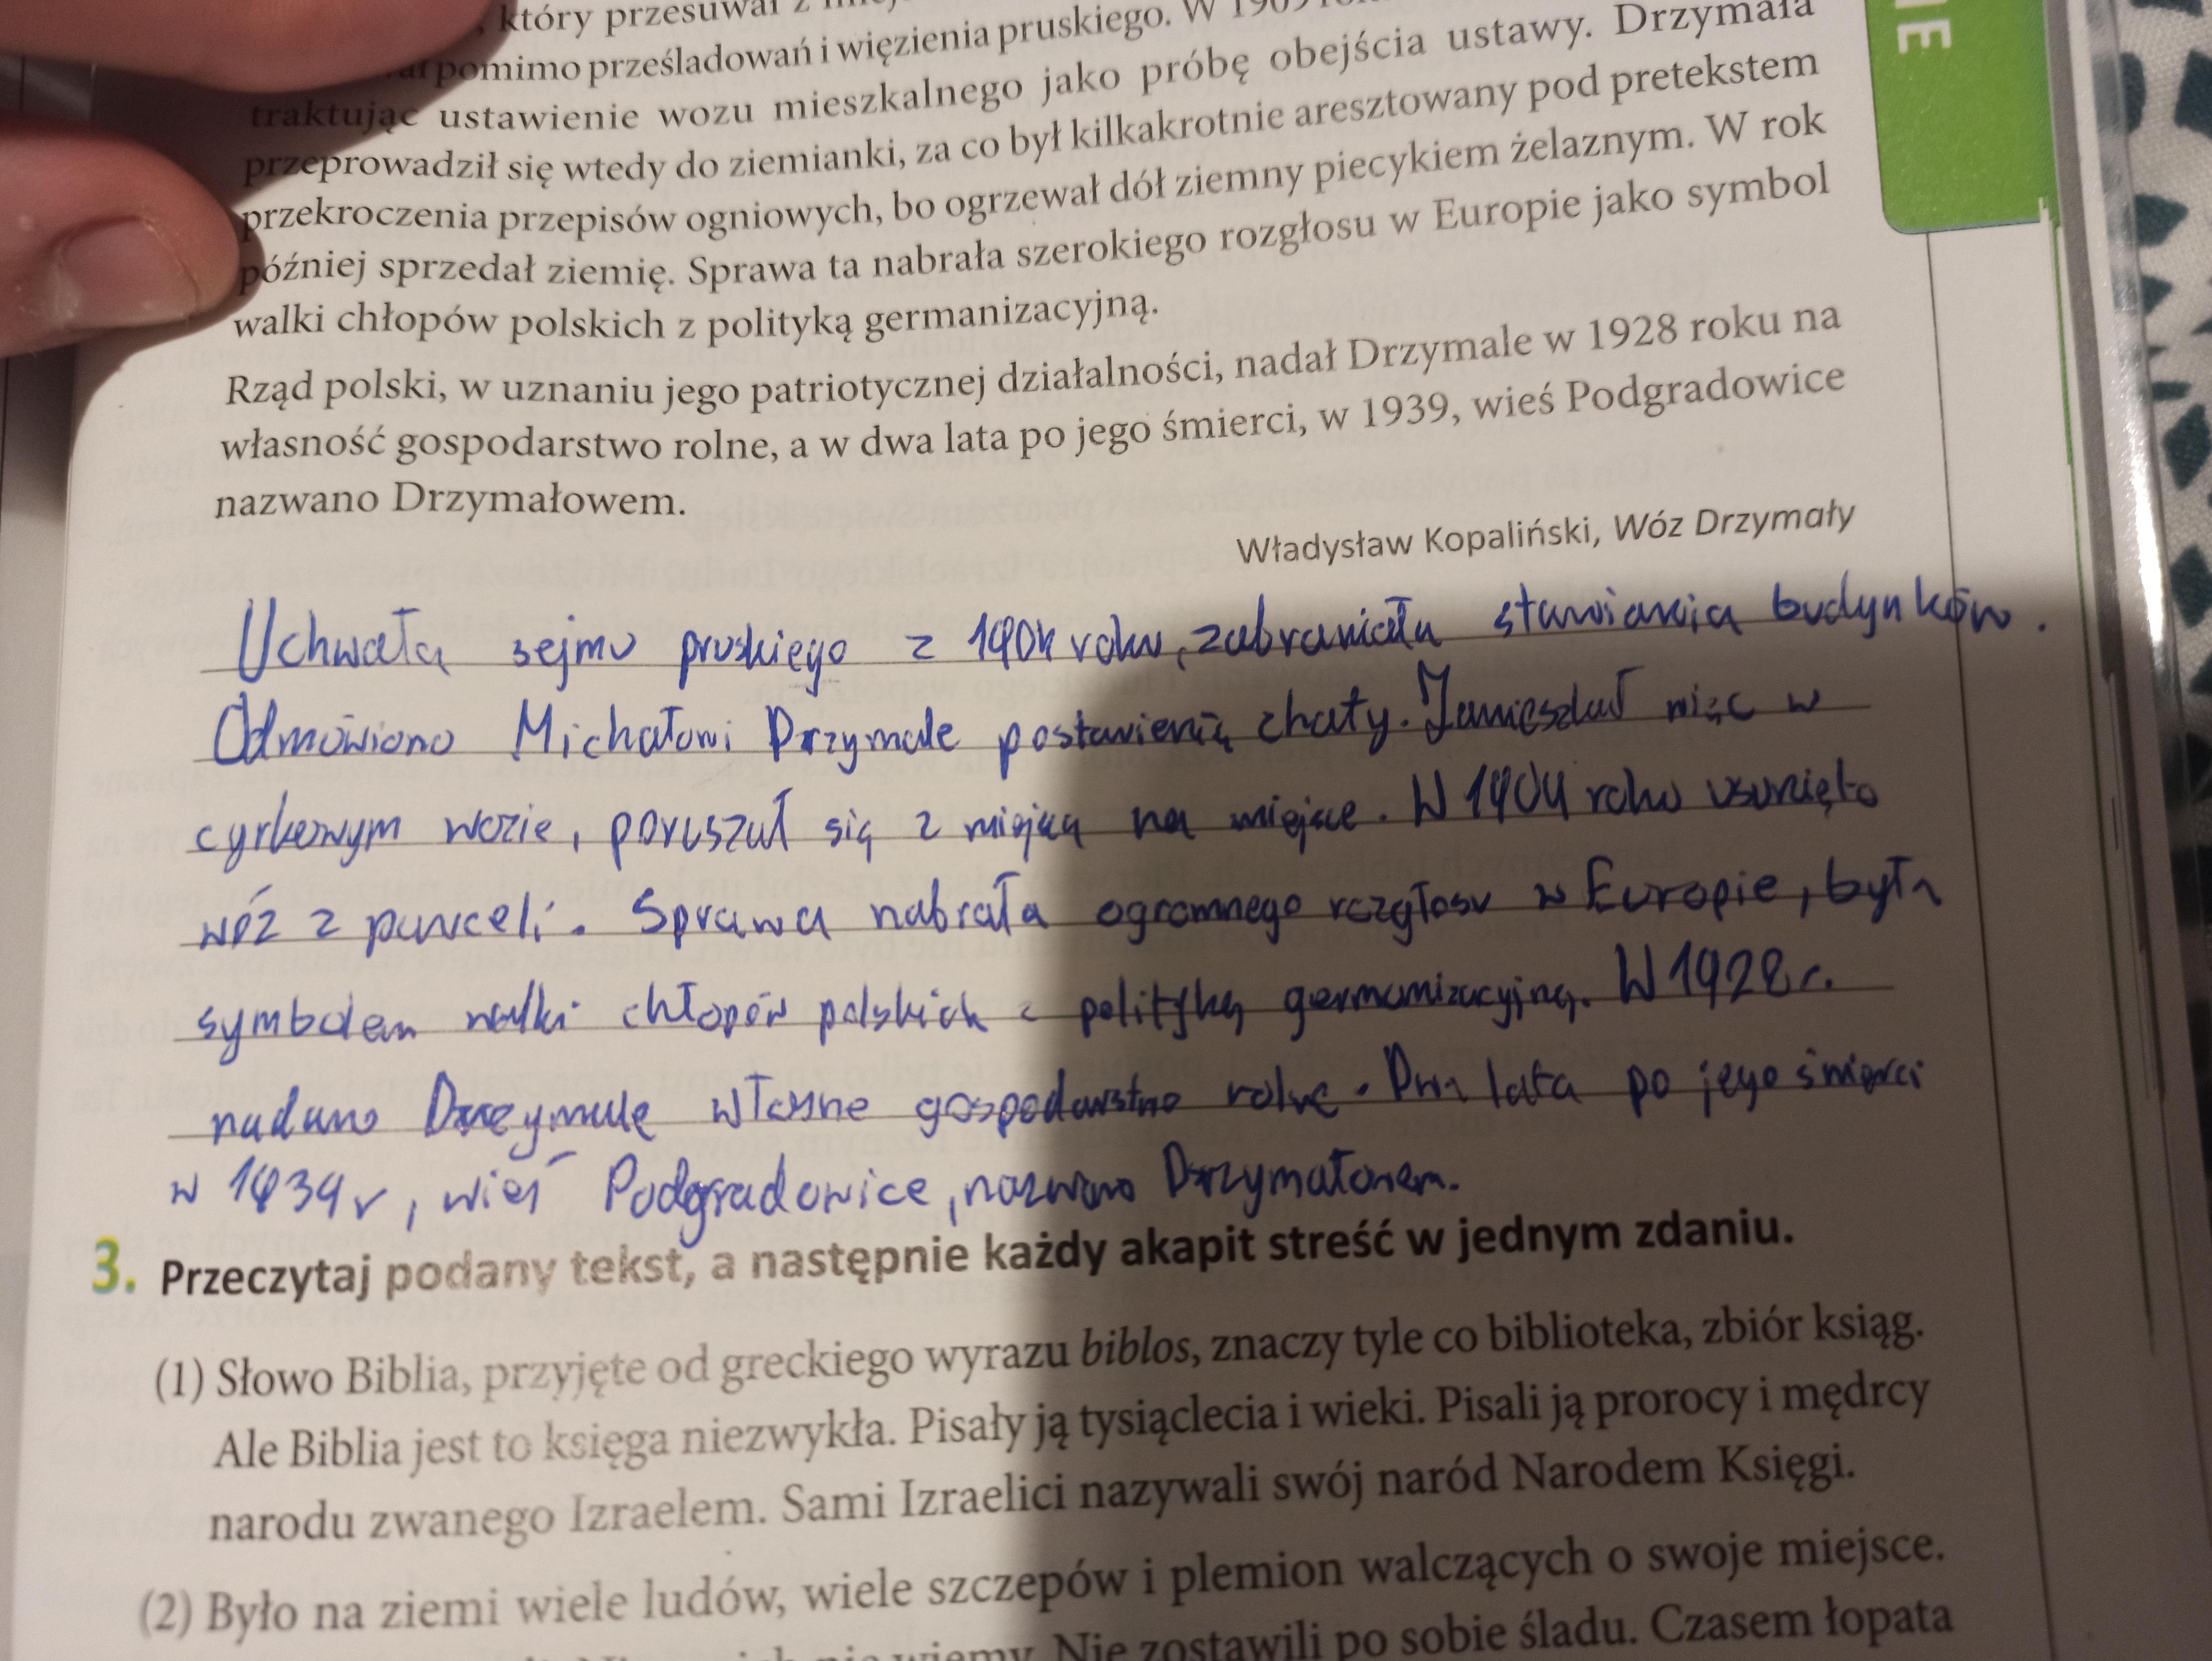 który przesuwał z
pomimo prześladowań i więzienia pruskiego. W
traktując ustawienie wozu mieszkalnego jako próbę obejścia ustawy. Drzymała
przeprowadził się wtedy do ziemianki, za co był kilkakrotnie aresztowany pod pretekstem
przekroczenia przepisów ogniowych, bo ogrzewał dół ziemny piecykiem żelaznym. W rok
później sprzedał ziemię. Sprawa ta nabrała szerokiego rozgłosu w Europie jako symbol
walki chłopów polskich z polityką germanizacyjną.
Rząd polski, w uznaniu jego patriotycznej działalności, nadał Drzymale w 1928 roku na
własność gospodarstwo rolne, a w dwa lata po jego śmierci, w 1939, wieś Podgradowice
nazwano Drzymałowem.
Władysław Kopaliński, Wóz Drzymały
Uchwała sejmu pruskiego z 1904 roku, zabraniała stawiania budynków.
Odmówiono Michałowi Drzymale postawienia chaty. Zamieszkał więc w
cyrkowym wozie, poruszał się z miejsca na miejsce. W 1904 roku usunięto
wóz z parceli. Sprawa nabrała ogromnego rozgłosu w Europie, była
symbolem walki chłopów polskich z polityką germanizacyjną. W 1928 r.
nadano Drzymale własne gospodarstwo rolne. Dwa lata po jego śmierci
w 1939 r, wieś Podgradowice, nazwano Drzymałowem.
3. Przeczytaj podany tekst, a następnie każdy akapit streść w jednym zdaniu.
(1) Słowo Biblia, przyjęte od greckiego wyrazu biblos, znaczy tyle co biblioteka, zbiór ksiąg.
Ale Biblia jest to księga niezwykła. Pisały ją tysiąclecia i wieki. Pisali ją prorocy i mędrcy
narodu zwanego Izraelem. Sami Izraelici nazywali swój naród Narodem Księgi.
(2) Było na ziemi wiele ludów, wiele szczepów i plemion walczących o swoje miejsce.
nie wiemy. Nie zostawili po sobie śladu. Czasem łopata